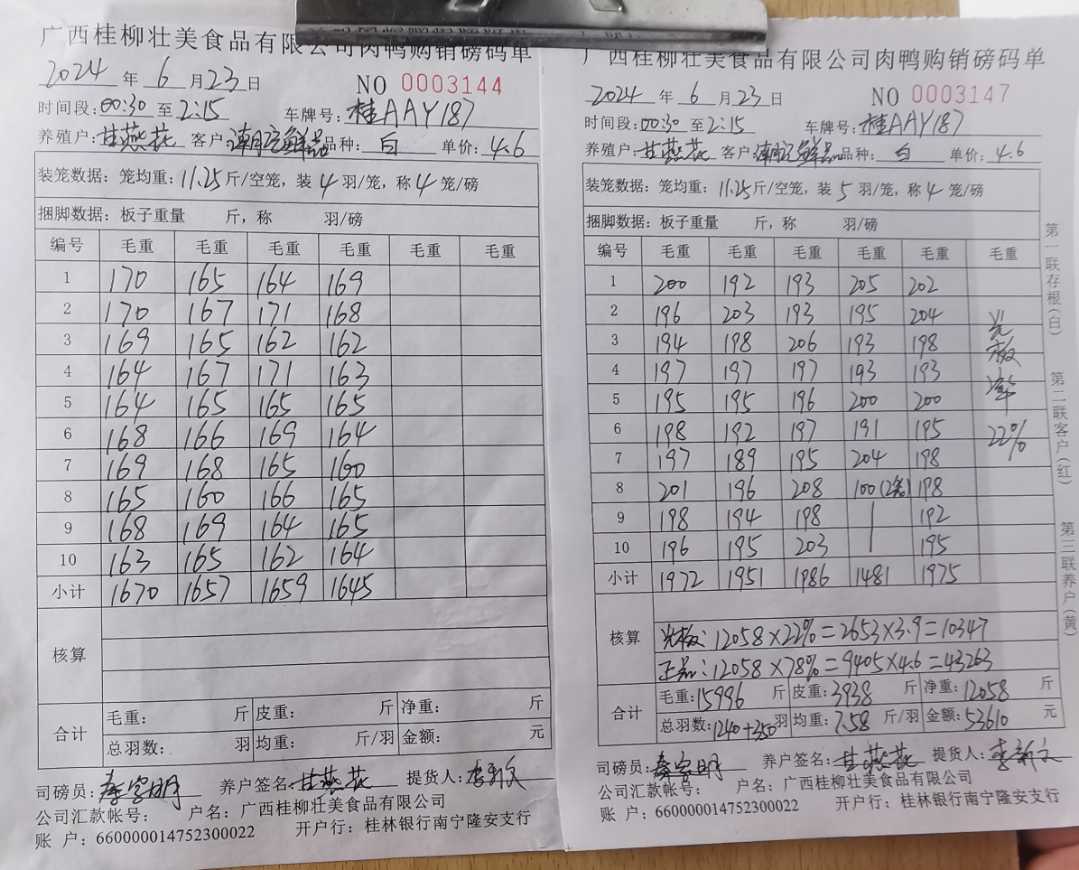 广西桂柳壮美食品有限公司肉鸭购销磅码单
2024 年 6 月 23 日 NO 0003144
时间段:00:30 至 2:15 车牌号:桂AAY187
养殖户:甘燕花 客户: 鲜品 品种: 白 单价: 4.6
装笼数据: 笼均重: 11.25 斤/空笼, 装 4 羽/笼, 称 4 笼/磅
捆脚数据: 板子重量 斤, 称 羽/磅
编号 毛重 毛重 毛重 毛重 毛重 毛重
1 170 165 164 169
2 170 167 171 168
3 169 165 162 162
4 164 167 171 163
5 164 165 165 165
6 168 166 169 164
7 169 168 165 160
8 165 160 166 165
9 168 169 164 165
10 163 165 162 164
小计 1670 1657 1659 1645
核算
合计 毛重: 斤 皮重: 斤 净重: 斤
总羽数: 羽 均重: 斤/羽 金额: 元
司磅员: 养户签名:甘燕花 提货人:
公司汇款帐号: 户名: 广西桂柳壮美食品有限公司
账 户: 660000014752300022 开户行: 桂林银行南宁隆安支行
广西桂柳壮美食品有限公司肉鸭购销磅码单
2024 年 6 月 23 日 NO 0003147
时间段:00:30 至 2:15 车牌号:桂AAY187
养殖户:甘燕花 客户: 鲜品 品种: 白 单价: 4.6
装笼数据: 笼均重: 11.25 斤/空笼, 装 5 羽/笼, 称 4 笼/磅
捆脚数据: 板子重量 斤, 称 羽/磅
编号 毛重 毛重 毛重 毛重 毛重 毛重
1 200 192 193 205 202
2 196 203 193 195 204
3 194 198 206 193 198
4 197 197 197 193 193
5 195 195 196 200 200
6 198 192 197 191 195
7 197 189 195 204 198
8 201 196 208 100(2笼) 198
9 198 194 198 192
10 196 195 203 195
小计 1972 1951 1986 1481 1975
光板率22%
核算 光板: 12058×22%=2653×3.9=10347
正品: 12058×78%=9405×4.6=43263
合计 毛重:15996 斤 皮重:3938 斤 净重:12058 斤
总羽数:1240+350羽 均重: 7.58 斤/羽 金额: 53610 元
司磅员: 养户签名:甘燕花 提货人:
公司汇款帐号: 户名: 广西桂柳壮美食品有限公司
账 户: 660000014752300022 开户行: 桂林银行南宁隆安支行
第一联存根(白) 第二联客户(红) 第三联养户(黄)